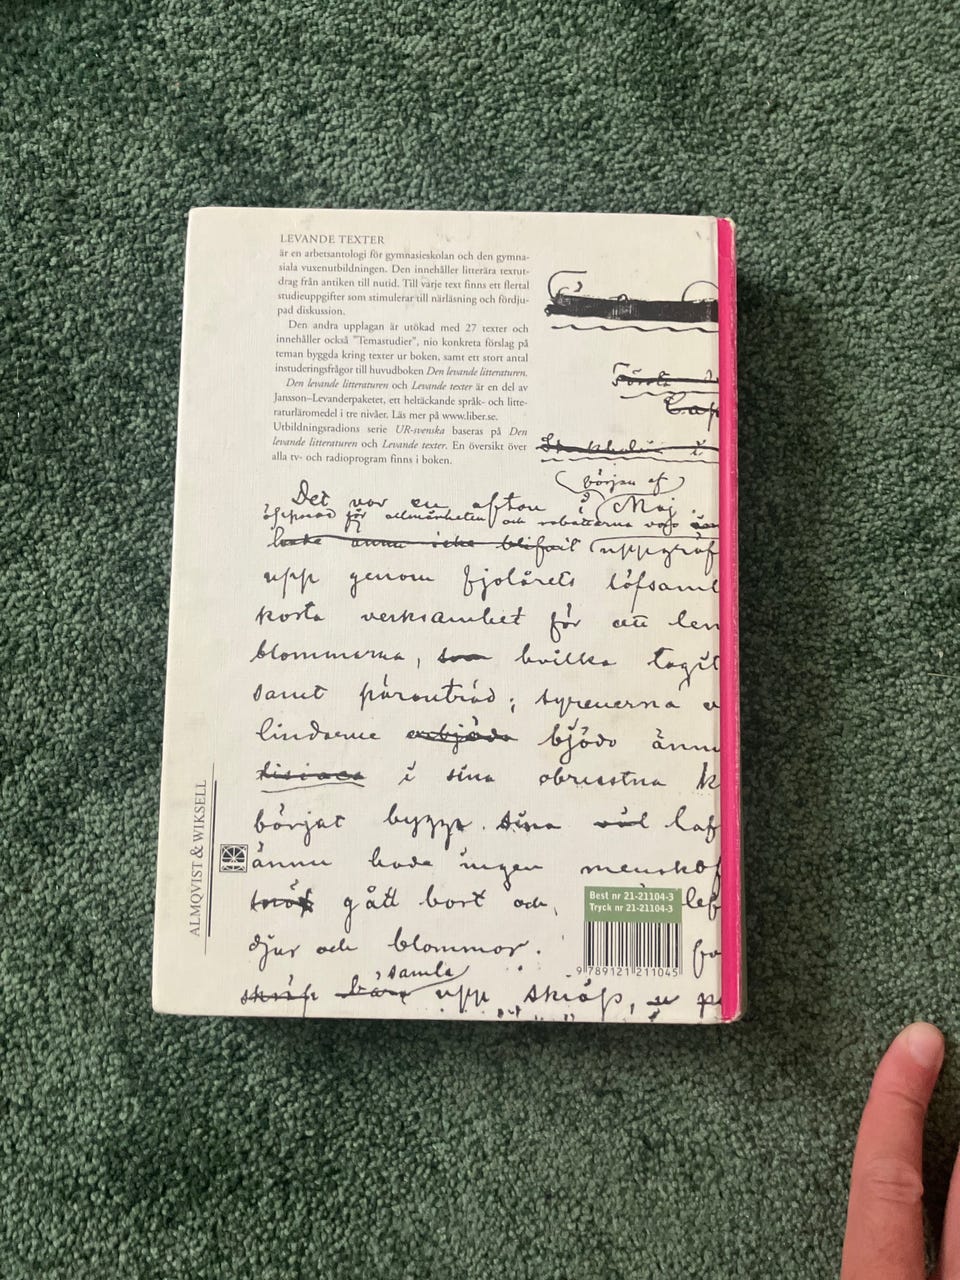 LEVANDE TEXTER
är en arbetsantologi för gymnasieskolan och den gymna-
siala vuxenutbildningen. Den innehåller litterära textut-
drag från antiken till nutid. Till varje text finns ett flertal
studieuppgifter som stimulerar till närläsning och fördju-
pad diskussion.
Den andra upplagan är utökad med 27 texter och
innehåller också "Temastudier", nio konkreta förslag på
teman byggda kring texter ur boken, samt ett stort antal
instuderingsfrågor till huvudboken Den levande litteraturen.
Den levande litteraturen och Levande texter är en del av
Jansson–Levanderpaketet, ett heltäckande språk- och litte-
raturläromedel i tre nivåer. Läs mer på www.liber.se.
Utbildningsradions serie UR-svenska baseras på Den
levande litteraturen och Levande texter. En översikt över
alla tv- och radioprogram finns i boken.
början af
Det var en afton i Maj.
öppnad för allmänheten och rabatterna voro
hade ännu icke blifvit uppgräf
upp genom fjolårets löfsaml
korta verksamhet för att
blommorna, som hvilka tagit
samt päronträd; syrenerna
lindarne bjödo ännu
i sina obrustna k
börjat bygga sina
ännu hade ingen mensk
gått bort och
djur och blommor.
samla
skräp bära upp skräp,
ALMQVIST & WIKSELL
Best nr 21-21104-3
Tryck nr 21-21104-3
9 789121 211045